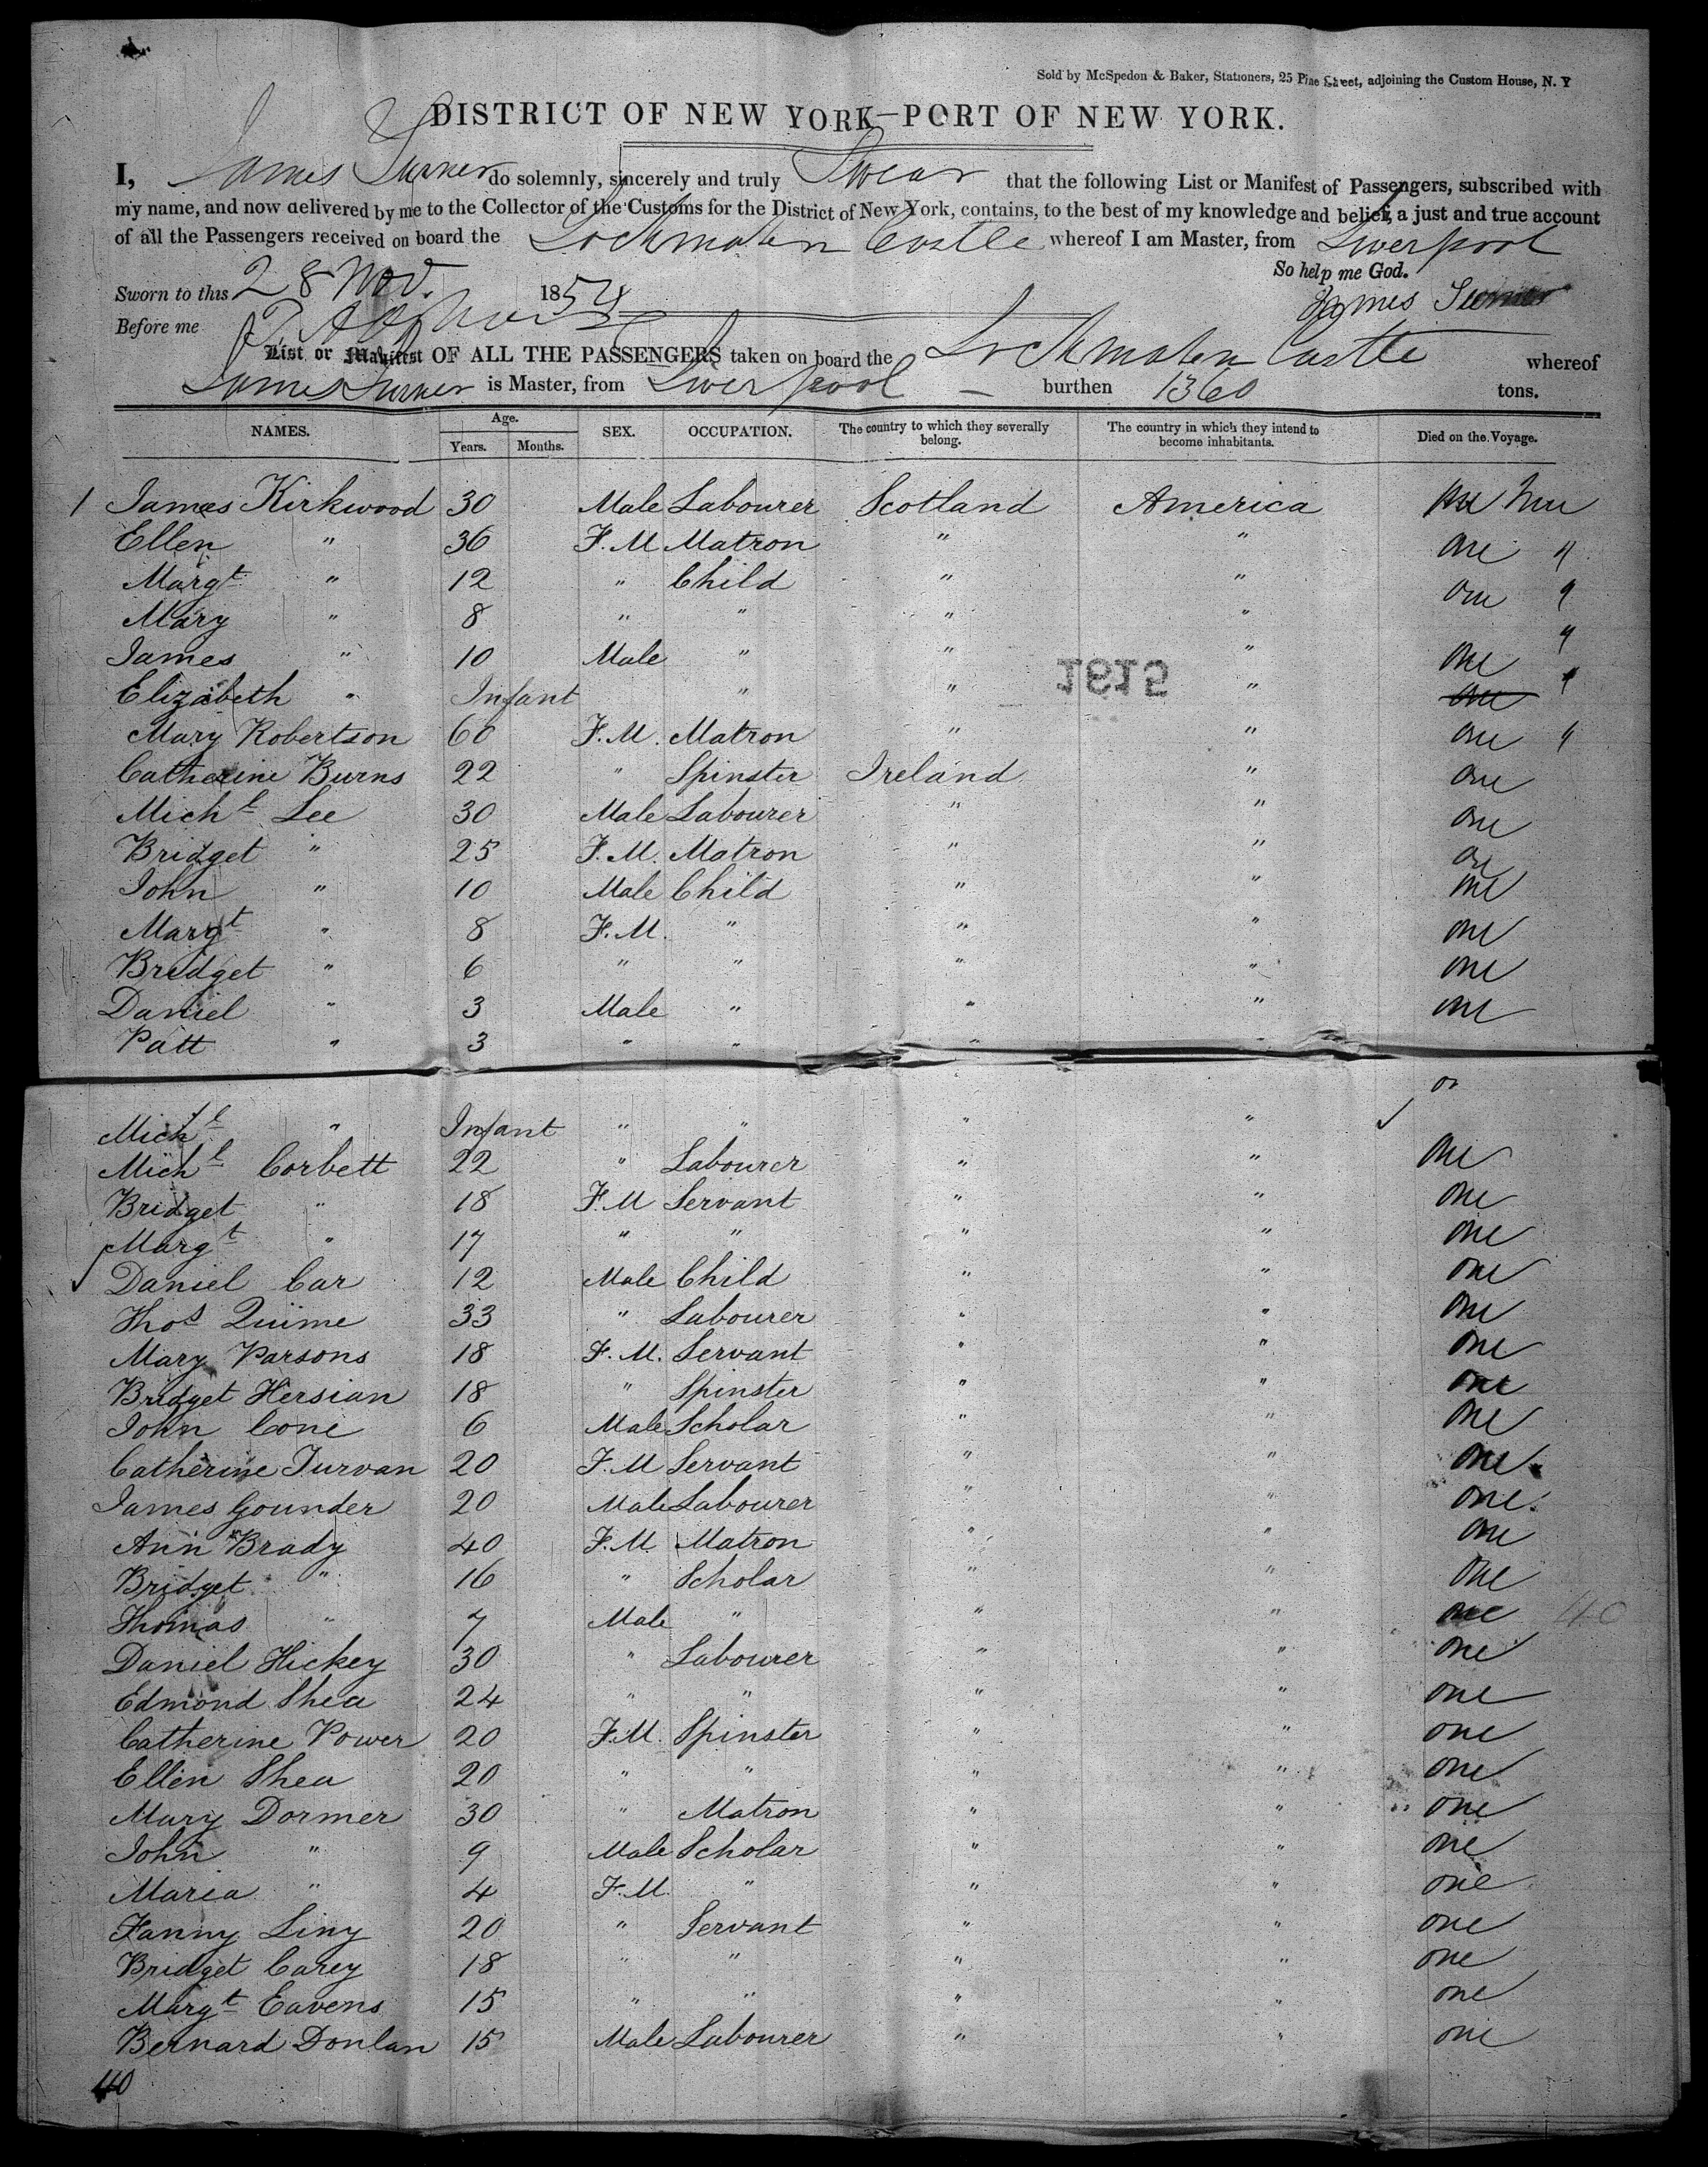 Sold by McSpedon & Baker, Stationers, 25 Pine Street, adjoining the Custom House, N. Y
DISTRICT OF NEW YORK—PORT OF NEW YORK.
I, James Turner do solemnly, sincerely and truly Swear that the following List or Manifest of Passengers, subscribed with
my name, and now delivered by me to the Collector of the Customs for the District of New York, contains, to the best of my knowledge and belief, a just and true account
of all the Passengers received on board the Lochmaben Castle whereof I am Master, from Liverpool
So help me God.
Sworn to this 28 Nov. 1854 James Turner
Before me
List or Manifest OF ALL THE PASSENGERS taken on board the Lochmaben Castle whereof
James Turner is Master, from Liverpool — burthen 1360 tons.
NAMES. Age. Years. Months. SEX. OCCUPATION. The country to which they severally belong. The country in which they intend to become inhabitants. Died on the Voyage.
1 James Kirkwood 30 Male Labourer Scotland America
Ellen " 36 F.M Matron " " one "
Margt " 12 " Child " " one "
Mary " 8 " " " " "
James " 10 Male " " " one "
Elizabeth " Infant " " " one "
1615
Mary Robertson 60 F.M. Matron " " one "
Catherine Burns 22 " Spinster Ireland " one
Michl Lee 30 Male Labourer " " one
Bridget " 25 F.M. Matron " " one
John " 10 Male Child " " one
Margt " 8 F.M. " " " one
Bridget " 6 " " " " one
Daniel " 3 Male " " " one
Patt " 3 " " " "
Michl " Infant " " " "
Michl Corbett 22 " Labourer " " one
Bridget " 18 F.M Servant " " one
Margt " 17 " " " " one
Daniel Car 12 Male Child " " one
Thos Quime 33 " Labourer " " one
Mary Parsons 18 F.M. Servant " " one
Bridget Hersian 18 " Spinster " " one
John Cone 6 Male Scholar " " one
Catherine Turvan 20 F.M Servant " " one
James Gounder 20 Male Labourer " " one
Ann Brady 40 F.M Matron " " one
Bridget " 16 " Scholar " " one
Thomas " 7 Male " " " one 40
Daniel Hickey 30 " Labourer " " one
Edmond Shea 24 " " " " one
Catherine Power 20 F.M. Spinster " " one
Ellen Shea 20 " " " " one
Mary Dormer 30 " Matron " " one
John " 9 Male Scholar " " one
Maria " 4 F.M. " " " one
Fanny Liny 20 " Servant " " one
Bridget Carey 18 " " " " one
Margt Eavens 15 " " " " one
Bernard Donlan 15 Male Labourer " " one
40